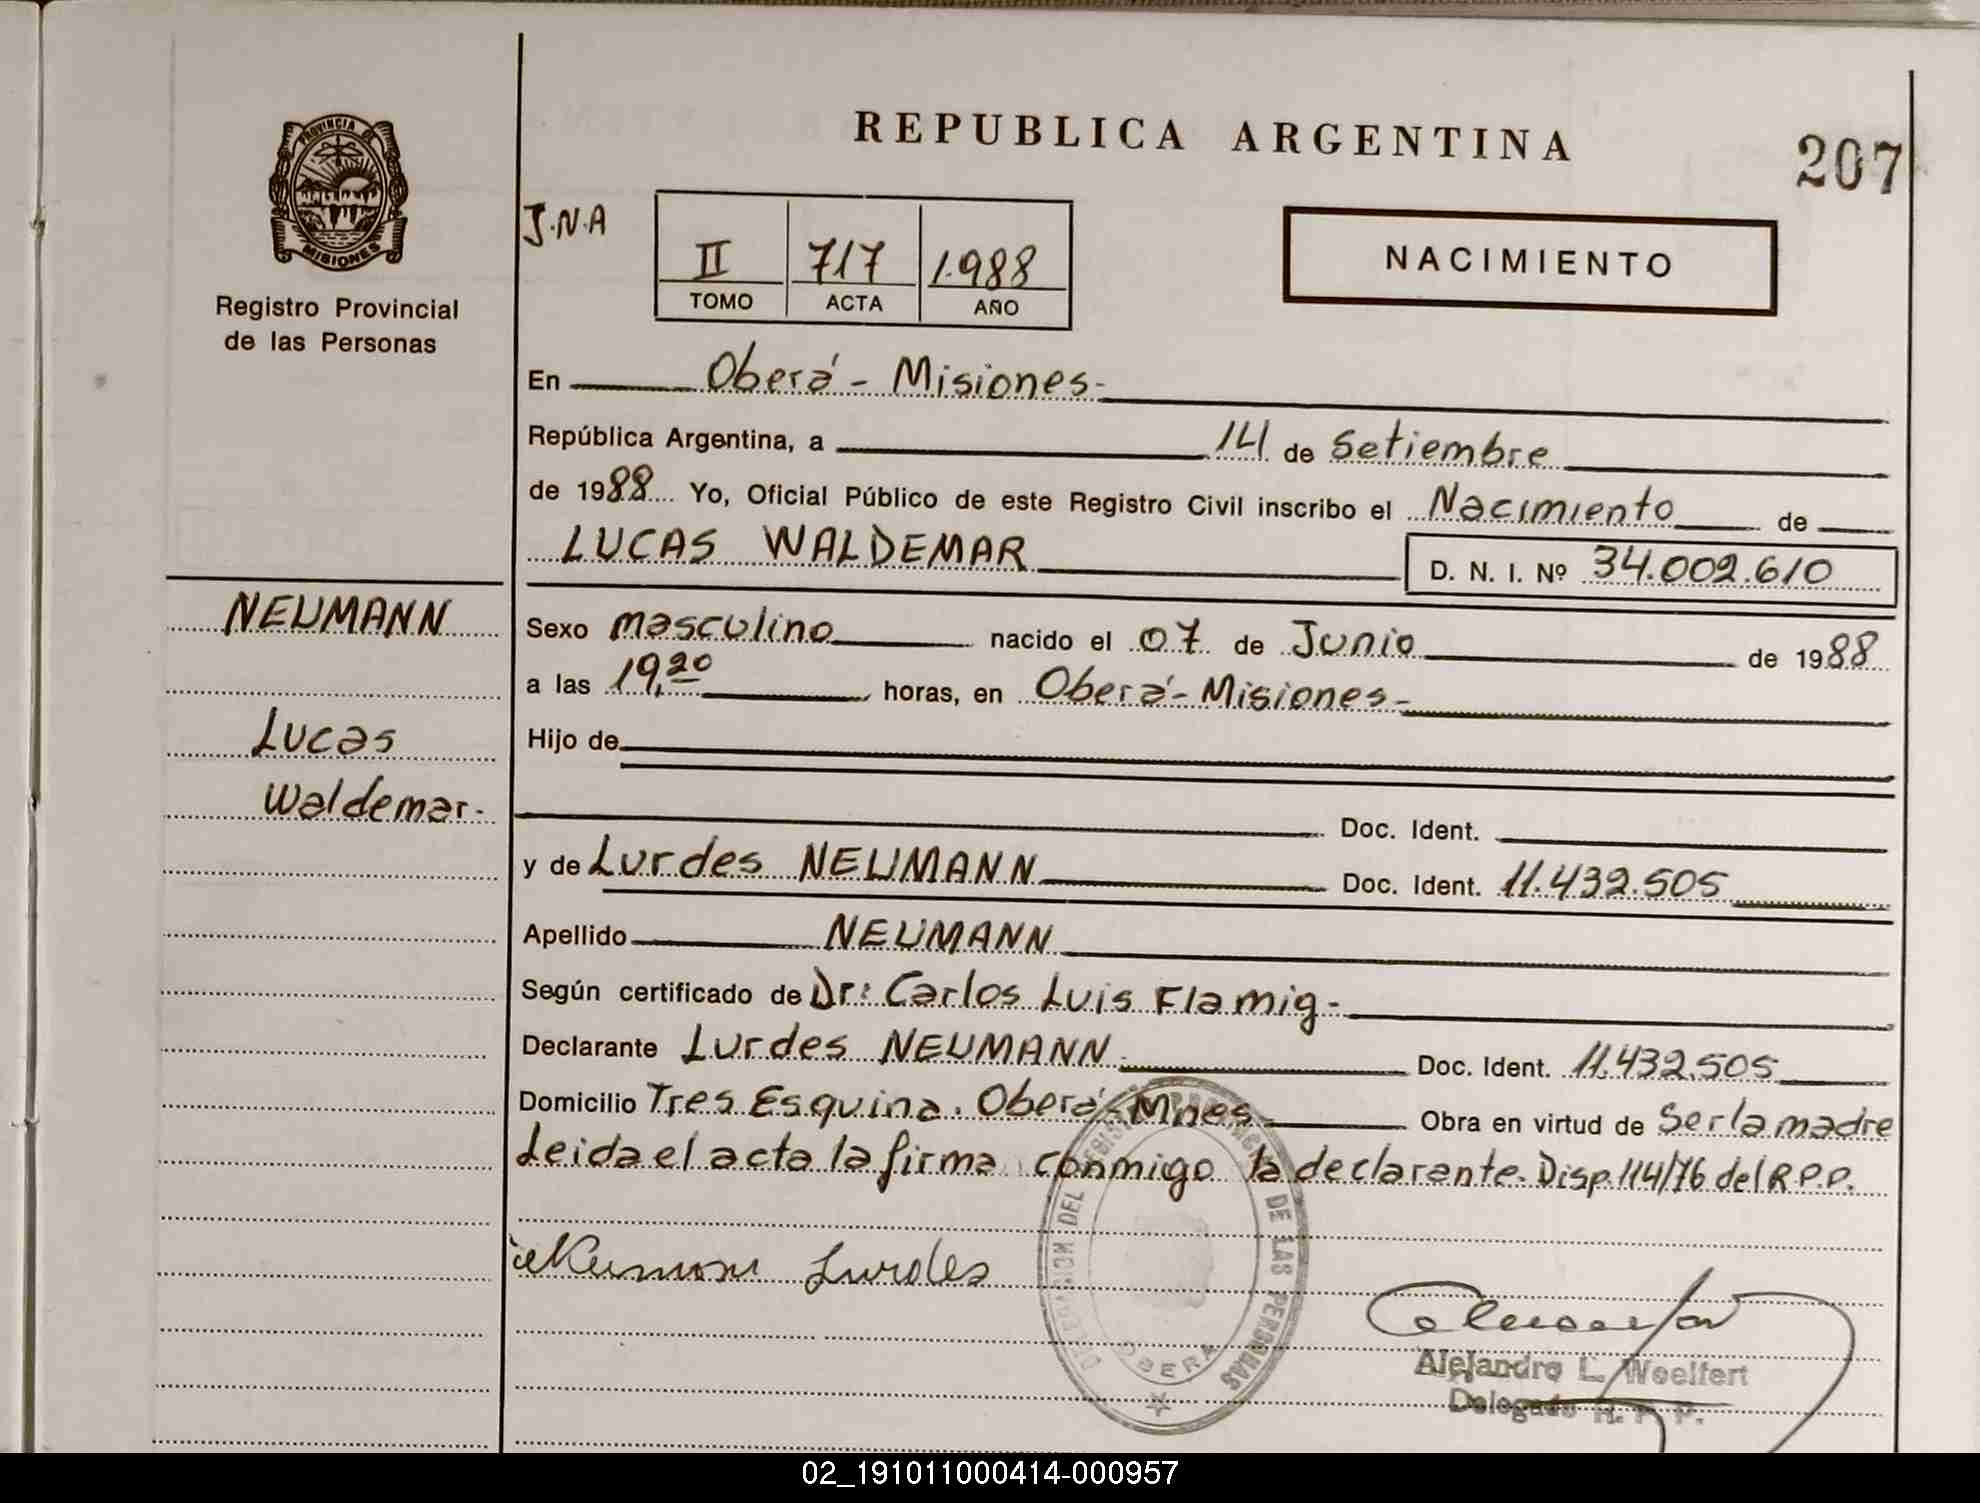 REPUBLICA ARGENTINA
207
PROVINCIA DE
MISIONES
Registro Provincial
de las Personas
J.N.A
II 717 1.988
TOMO ACTA AÑO
NACIMIENTO
En Oberá - Misiones-
República Argentina, a 14 de Setiembre
de 1988 Yo, Oficial Público de este Registro Civil inscribo el Nacimiento de
LUCAS WALDEMAR
D. N. I. Nº 34.002.610
NEUMANN
Lucas
Waldemar-
Sexo masculino nacido el 07 de Junio de 1988
a las 19,20 horas, en Oberá - Misiones-
Hijo de
Doc. Ident.
y de Lurdes NEUMANN Doc. Ident. 11.432.505
Apellido NEUMANN
Según certificado de Dr: Carlos Luis Flamig-
Declarante Lurdes NEUMANN. Doc. Ident. 11.432.505
Domicilio Tres Esquina. Oberá-Mnes Obra en virtud de Ser la madre
Leida el acta la firma conmigo la declarante. Disp. 114/76 del R.P.P.
Lurdes
DE LAS PERSONAS
OBERA
Alejandro L. Woelfert
Delegado R. P. P.
02_191011000414-000957